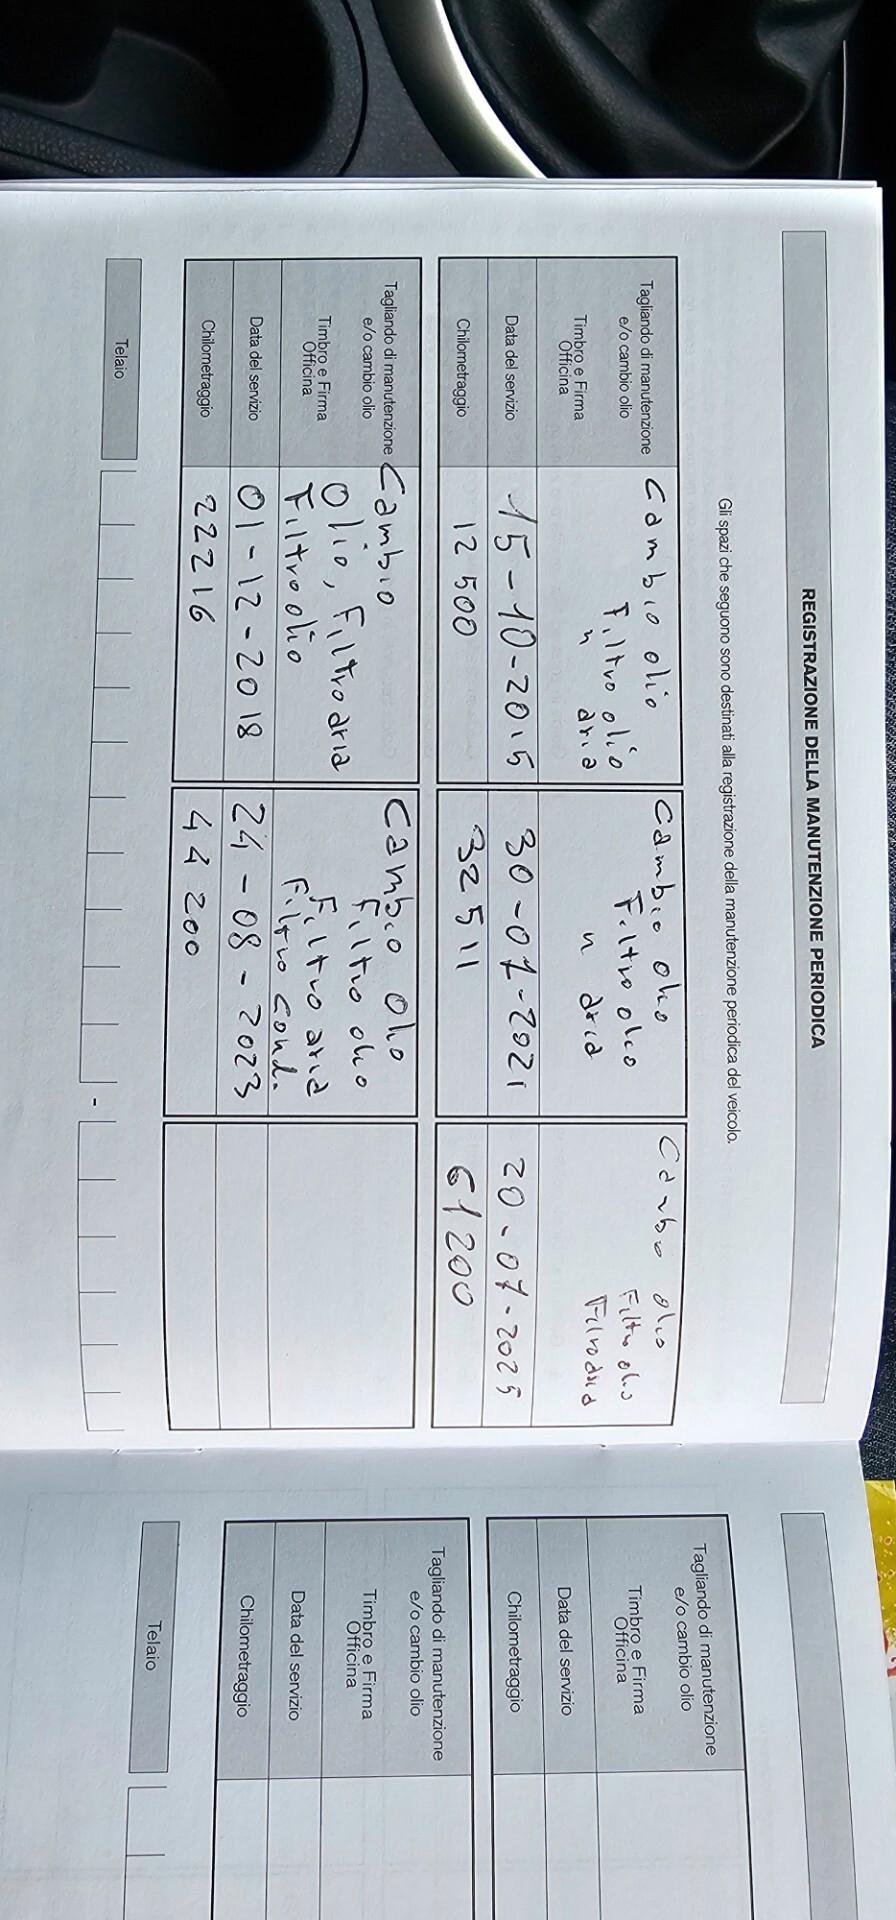 REGISTRAZIONE DELLA MANUTENZIONE PERIODICA
Gli spazi che seguono sono destinati alla registrazione della manutenzione periodica del veicolo.
Tagliando di manutenzione
e/o cambio olio
Timbro e Firma
Officina
Data del servizio
Chilometraggio
Cambio olio
Filtro olio
" aria
15-10-2015
12 500
Cambio olio
Filtro olio
" aria
30-07-2021
32511
Cambio olio
Filtro olio
Filtro aria
20-07-2025
61200
Tagliando di manutenzione
e/o cambio olio
Timbro e Firma
Officina
Data del servizio
Chilometraggio
Cambio
Olio, Filtro aria
Filtro olio
01-12-2018
22216
Cambio Olio
Filtro olio
Filtro aria
Filtro cond.
24-08-2023
44 200
Telaio
-
Tagliando di manutenzione
e/o cambio olio
Timbro e Firma
Officina
Data del servizio
Chilometraggio
Tagliando di manutenzione
e/o cambio olio
Timbro e Firma
Officina
Data del servizio
Chilometraggio
Telaio